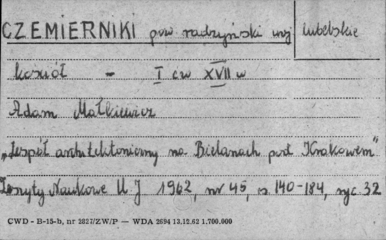 CZEMIERNIKI pow radzyński woj lubelskie
kosciół - I ćw XVII w
Adam Małkiewicz
„Zespół architektoniczny na Bielanach pod Krakowem"
Zeszyty Naukowe U J 1962, nr 45, s. 140-184, ryc. 32
CWD - B-15-b, nr 2827/ZW/P — WDA 2694 13.12.62 1.700.000